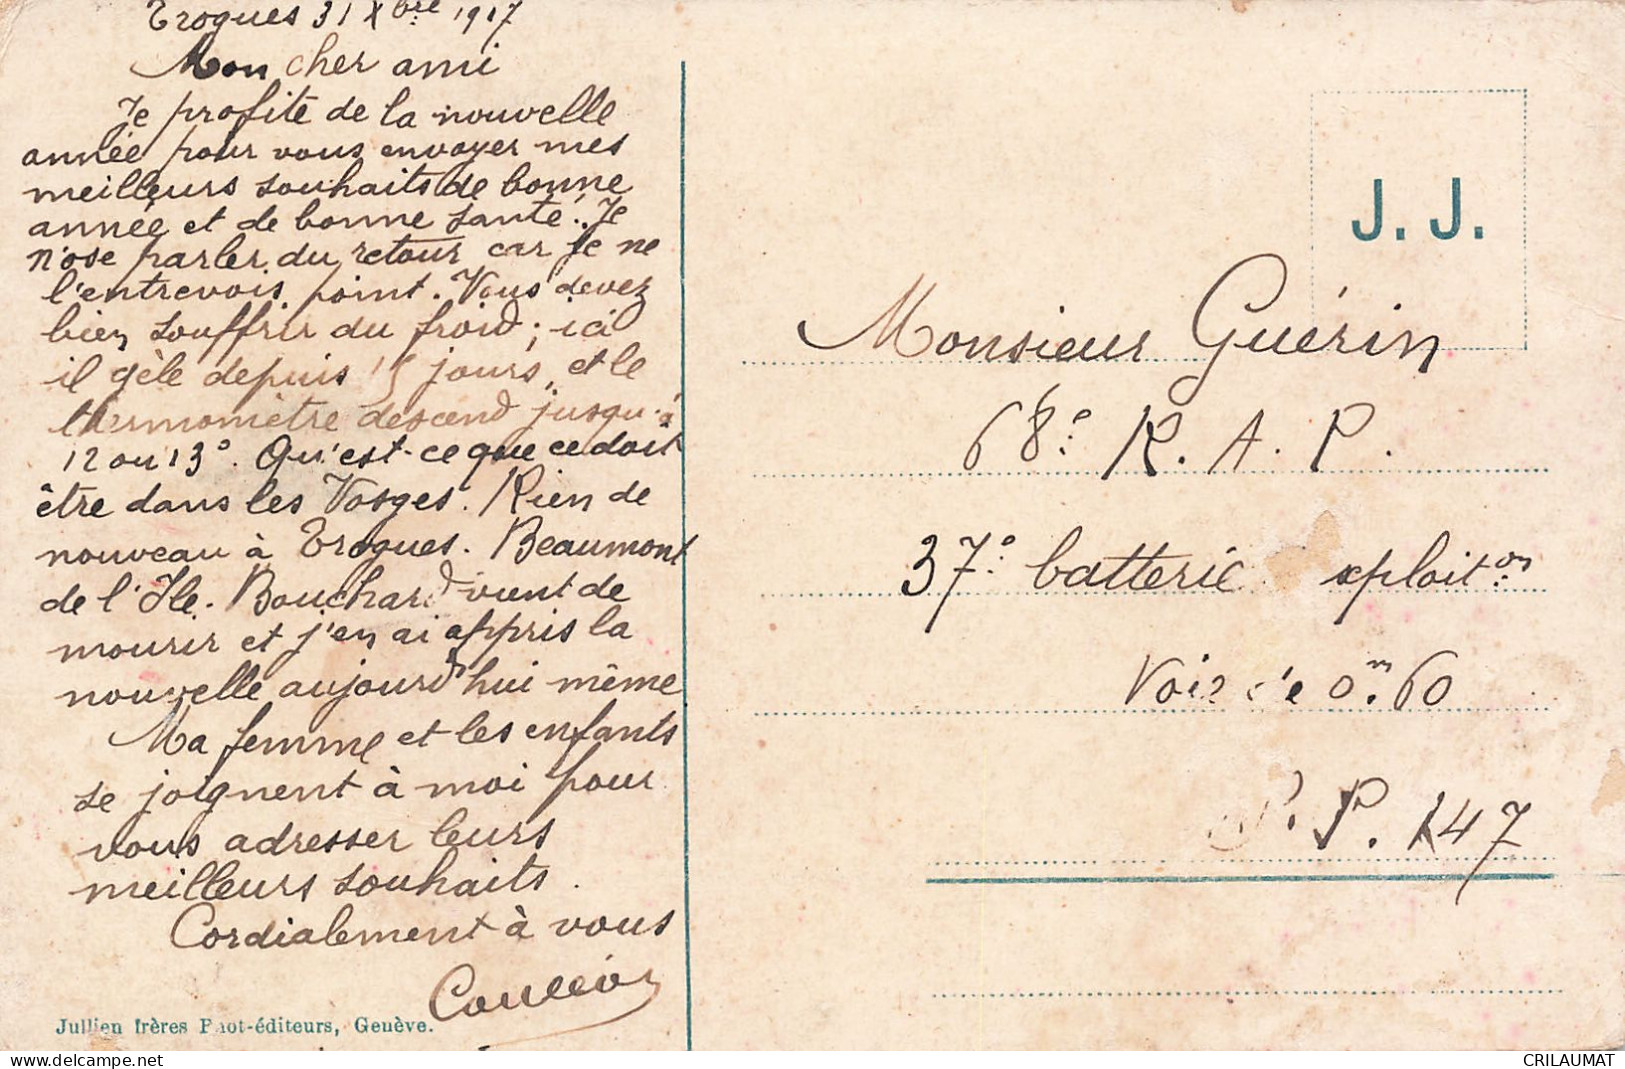 Trogues 31 Xbre 1917
Mon cher ami
Je profite de la nouvelle
année pour vous envoyer mes
meilleurs souhaits de bonne
année et de bonne santé. Je
n'ose parler du retour car je ne
l'entrevois point. Vous devez
bien souffrir du froid ; ici
il gèle depuis 15 jours, et le
thermomètre descend jusqu'à
12 ou 13°. Qu'est-ce que ce doit
être dans les Vosges. Rien de
nouveau à Trogues. Beaumont
de l'Ile. Bouchard vient de
mourir et j'en ai appris la
nouvelle aujourd'hui même
Ma femme et les enfants
se joignent à moi pour
vous adresser leurs
meilleurs souhaits.
Cordialement à vous
Jullien frères Phot-éditeurs, Genève.
J. J.
Monsieur Guérin
68e R. A. P.
37e batterie exploiton
Voie de 0m,60
S. P. 147
delcampe.net
CRILAUMAT